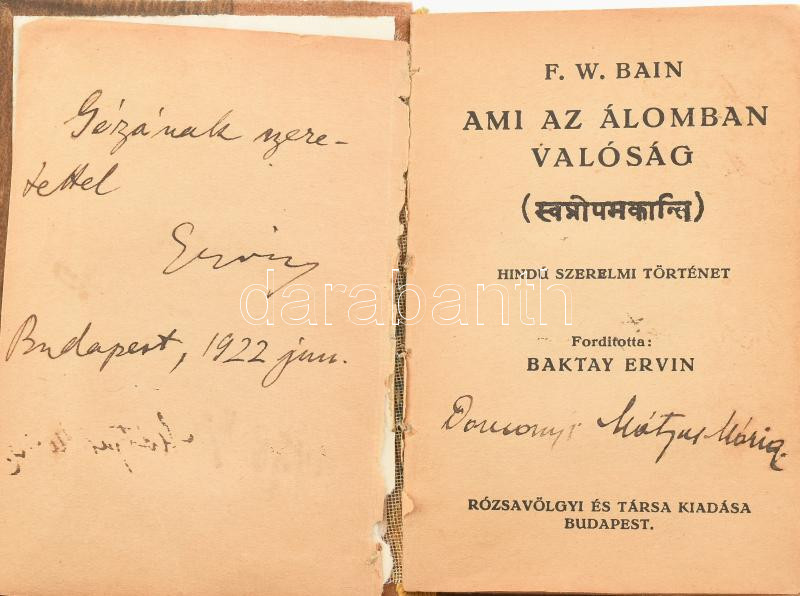 Gézának szere-
tettel
Ervin
Budapest, 1922 jun.
F. W. BAIN
AMI AZ ÁLOMBAN
VALÓSÁG
(स्वप्नोपमकान्ति)
HINDÚ SZERELMI TÖRTÉNET
Forditotta:
BAKTAY ERVIN
Mátyus Mária
RÓZSAVÖLGYI ÉS TÁRSA KIADÁSA
BUDAPEST.
darabanth